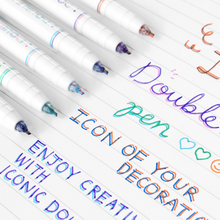 Double
pen ♡♡
ICON OF YOUR
DECORATIO
ENJOY CREATI
WITH
ICONIC DOU